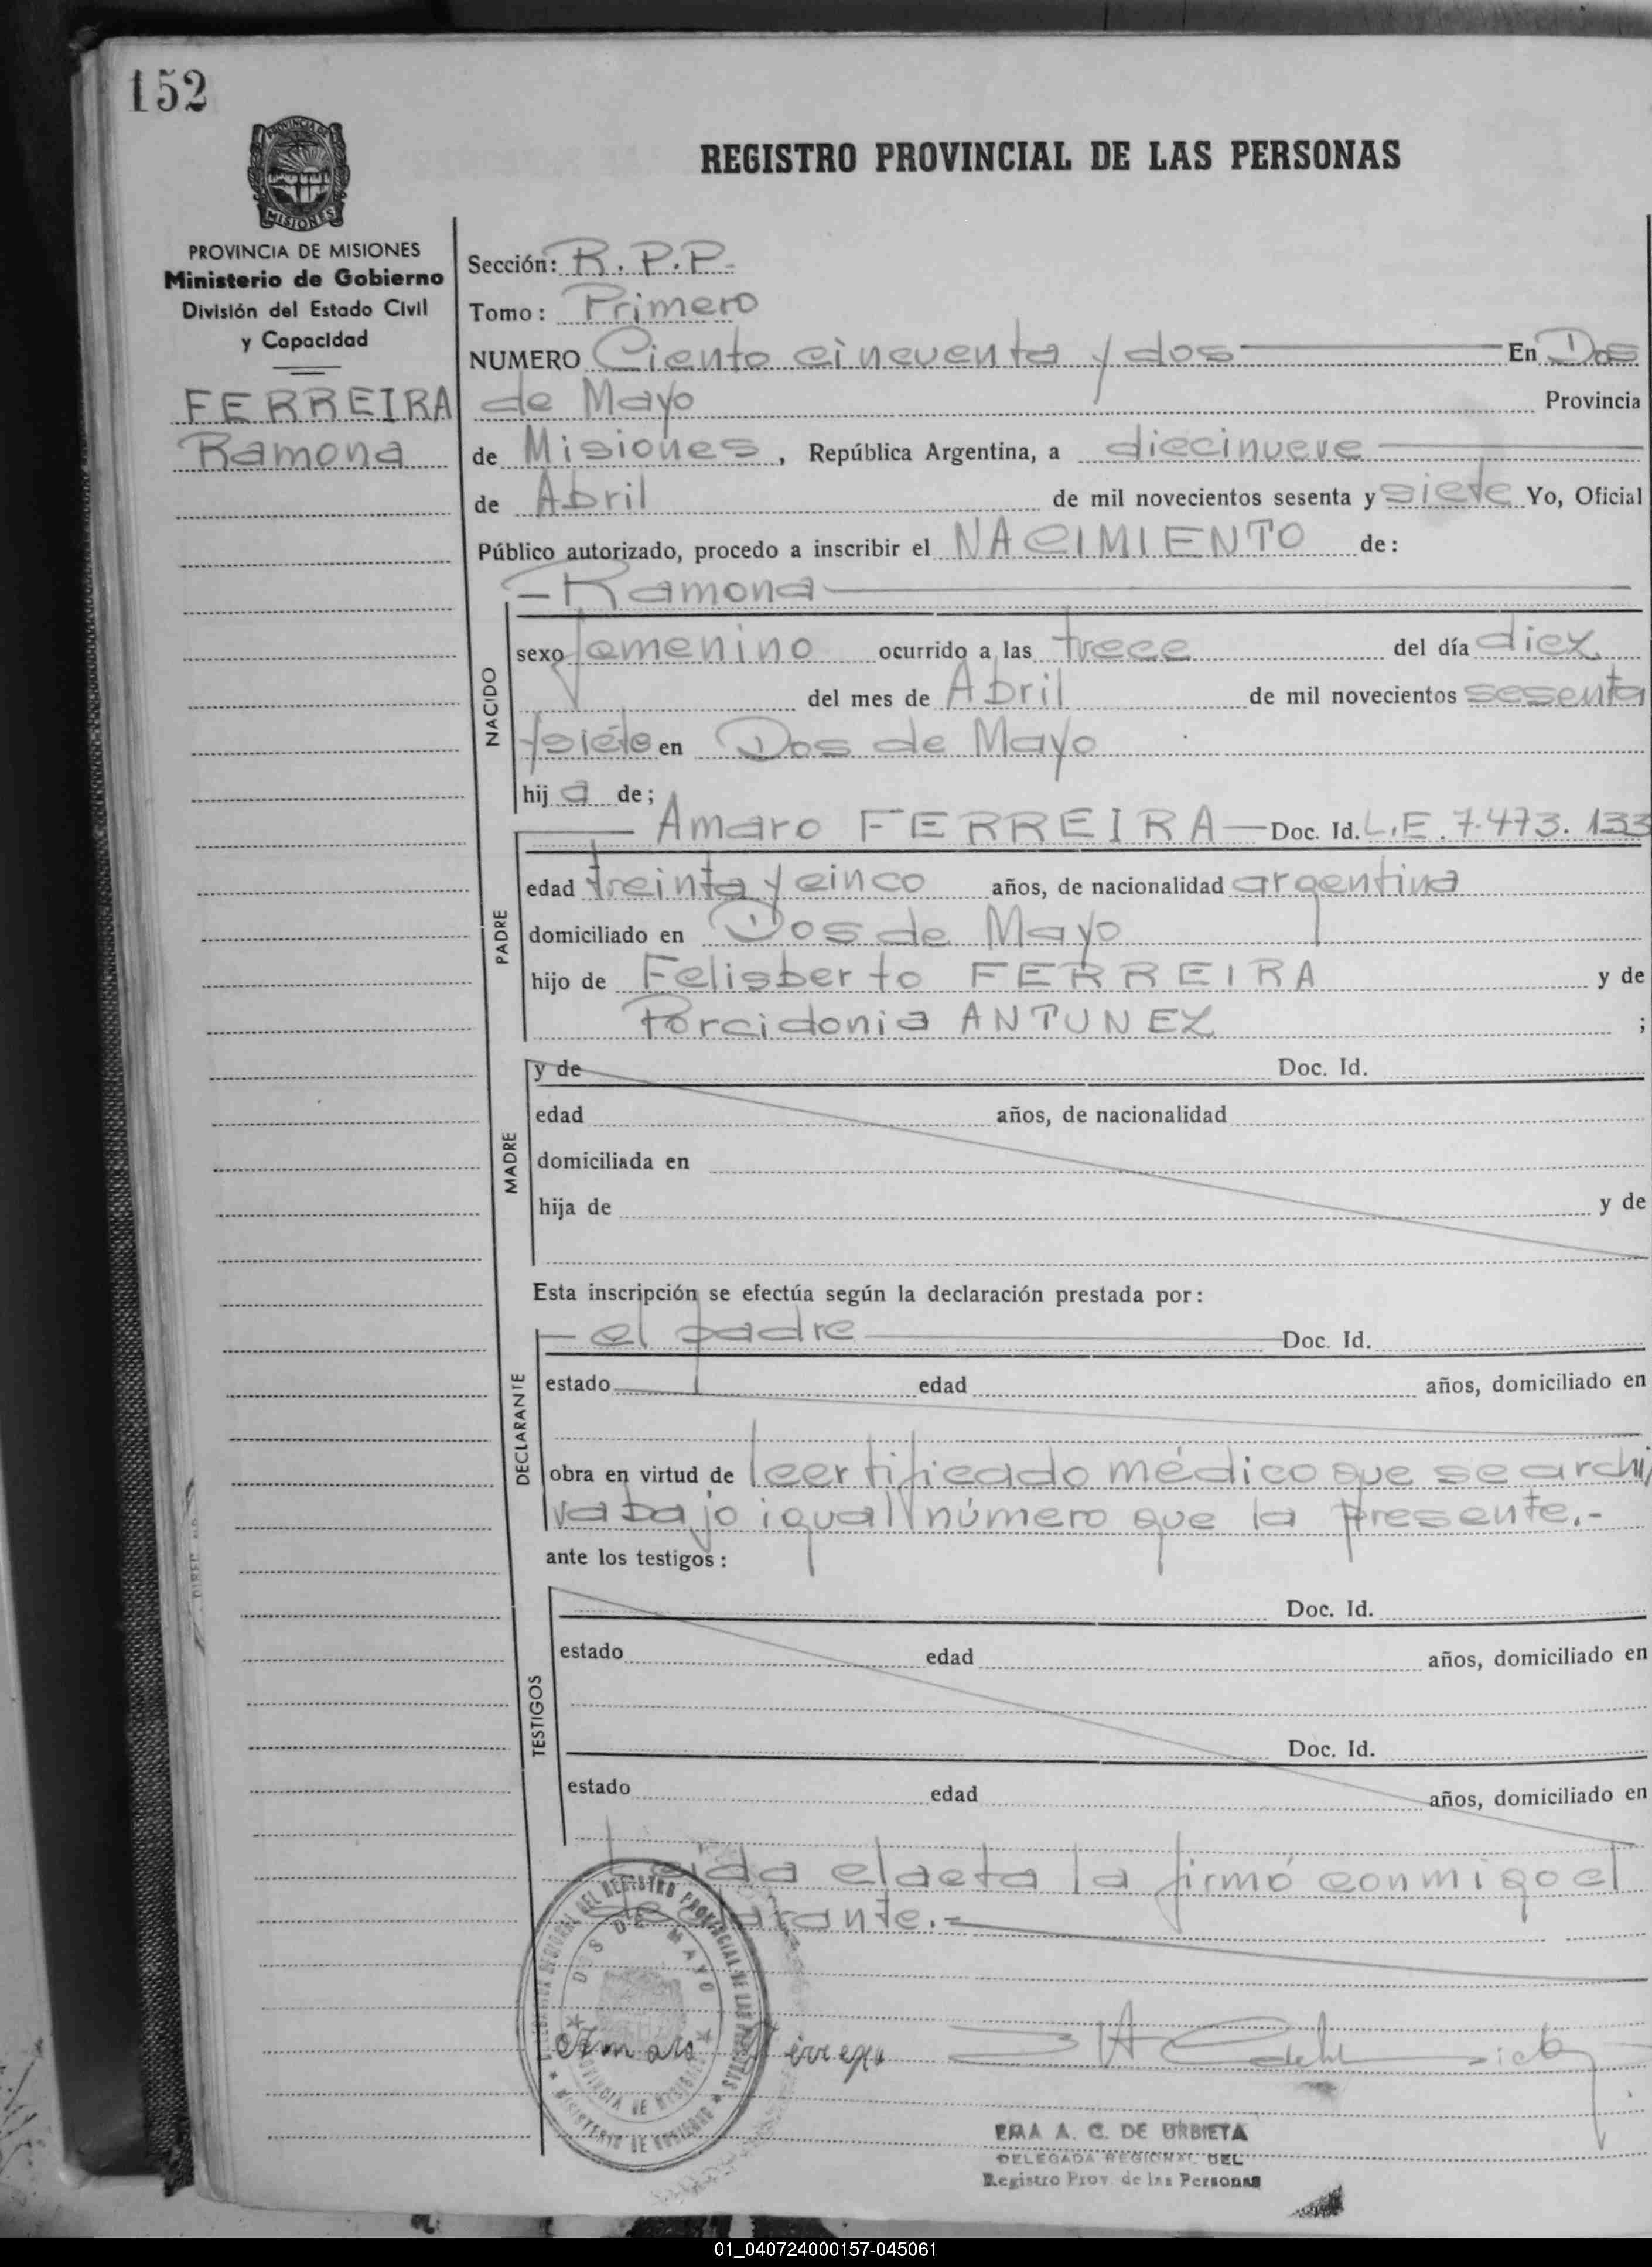 152
PROVINCIA DE
MISIONES
REGISTRO PROVINCIAL DE LAS PERSONAS
PROVINCIA DE MISIONES
Ministerio de Gobierno
División del Estado Civil
y Capacidad
FERREIRA
Ramona
Sección: R. P. P.
Tomo: Primero
NUMERO Ciento cincuenta y dos En Dos
de Mayo Provincia
de Misiones, República Argentina, a diecinueve
de Abril de mil novecientos sesenta y siete Yo, Oficial
Público autorizado, procedo a inscribir el NACIMIENTO de:
- Ramona
NACIDO
sexo femenino ocurrido a las trece del día diez
del mes de Abril de mil novecientos sesenta
y siete en Dos de Mayo
hija de;
PADRE
Amaro FERREIRA - Doc. Id. L.E. 7.473.133
edad treinta y cinco años, de nacionalidad argentina
domiciliado en Dos de Mayo
hijo de Felisberto FERREIRA y de
Porcidonia ANTUNEZ ;
MADRE
y de Doc. Id.
edad años, de nacionalidad
domiciliada en
hija de y de
Esta inscripción se efectúa según la declaración prestada por:
DECLARANTE
- el padre Doc. Id.
estado edad años, domiciliado en
obra en virtud de certificado médico que se archi
va bajo igual número que la presente.-
ante los testigos:
TESTIGOS
Doc. Id.
estado edad años, domiciliado en
Doc. Id.
estado edad años, domiciliado en
Leida el acta la firmó conmigo el
declarante.-
DELEGACION REGIONAL DEL REGISTRO PROVINCIAL DE LAS PERSONAS
DOS DE MAYO
PROVINCIA DE MISIONES
MINISTERIO DE GOBIERNO
Amaro Ferreira
EMA A. C. DE URBIETA
DELEGADA REGIONAL DEL
Registro Prov. de las Personas
01_040724000157-045061